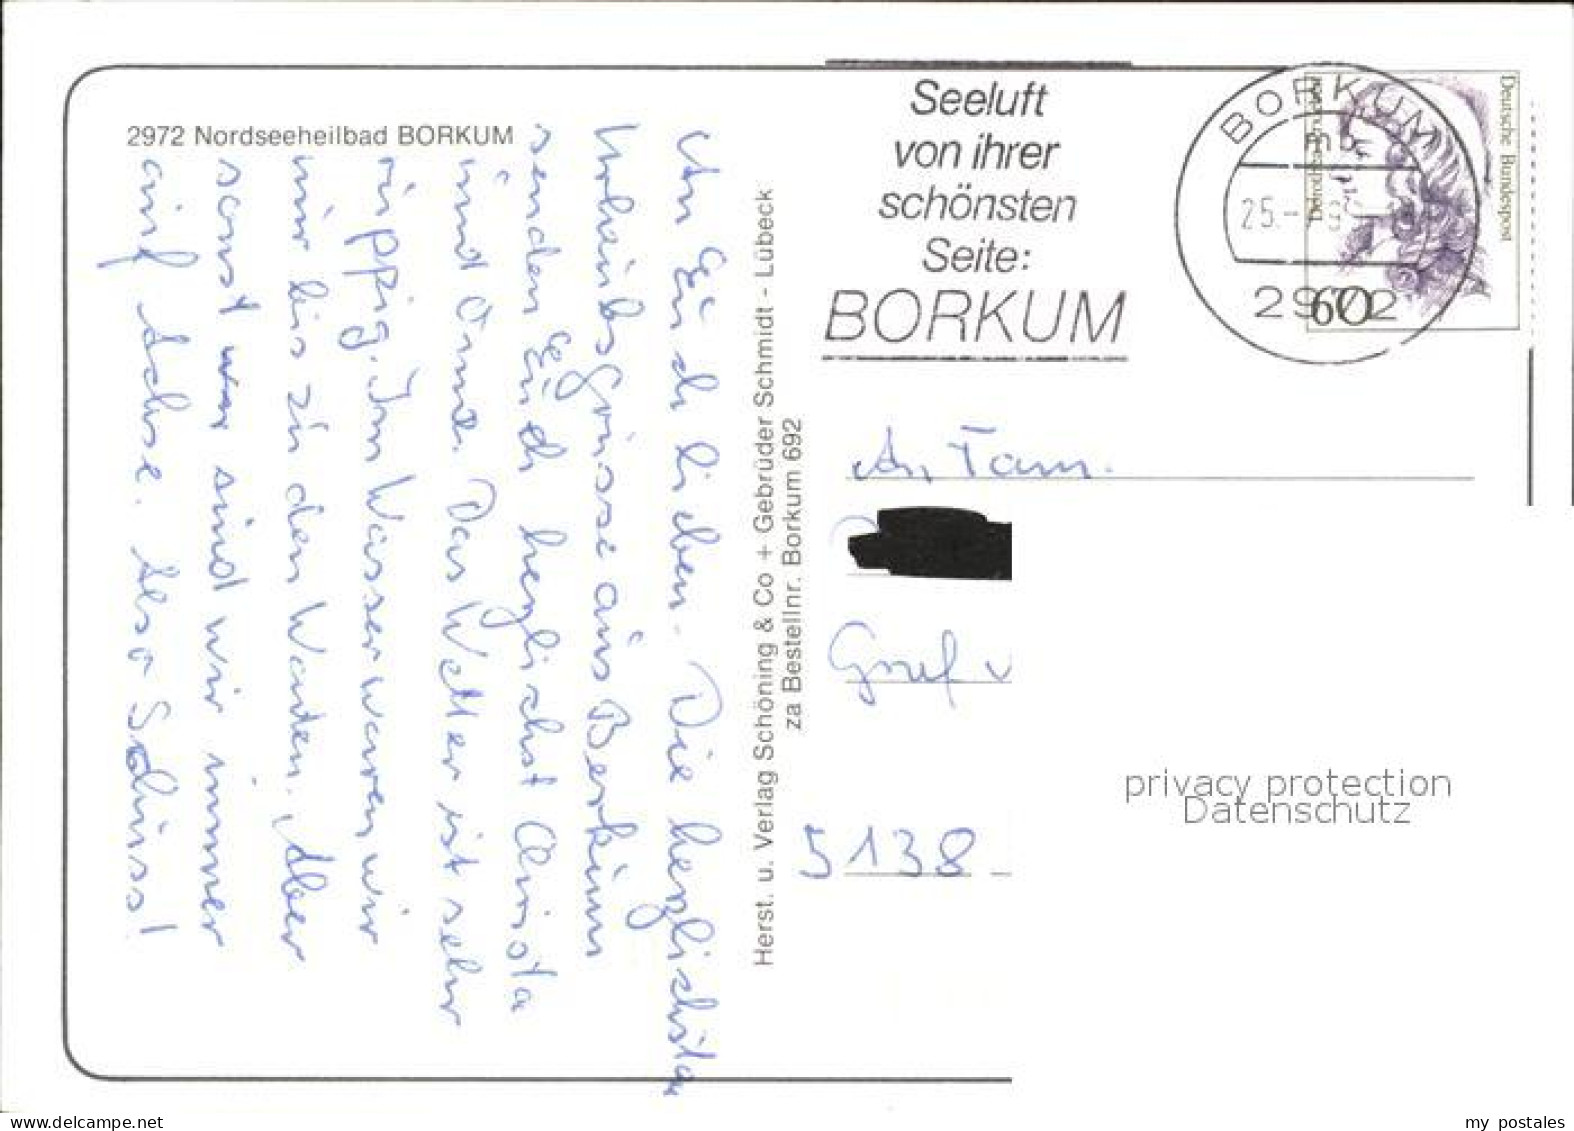 2972 Nordseeheilbad BORKUM
An Euch Lieben. Die herzlichsten
Urlaubsgrüsse aus Borkum
senden Euch herzlichst Christa
und Oma. Das Wetter ist sehr
üppig. Im Wasser waren wir
nur bis zu den Waden. Aber
sonst sind wir immer
auf Achse. Also Schüss!
Herst. u. Verlag Schöning & Co + Gebrüder Schmidt - Lübeck
za Bestellnr. Borkum 692
Seeluft
von ihrer
schönsten
Seite:
BORKUM
BORKUM
mb
25.
2972
Deutsche Bundespost
60
An Fam.
Graf v
5138
privacy protection
Datenschutz
www.delcampe.net
my postales